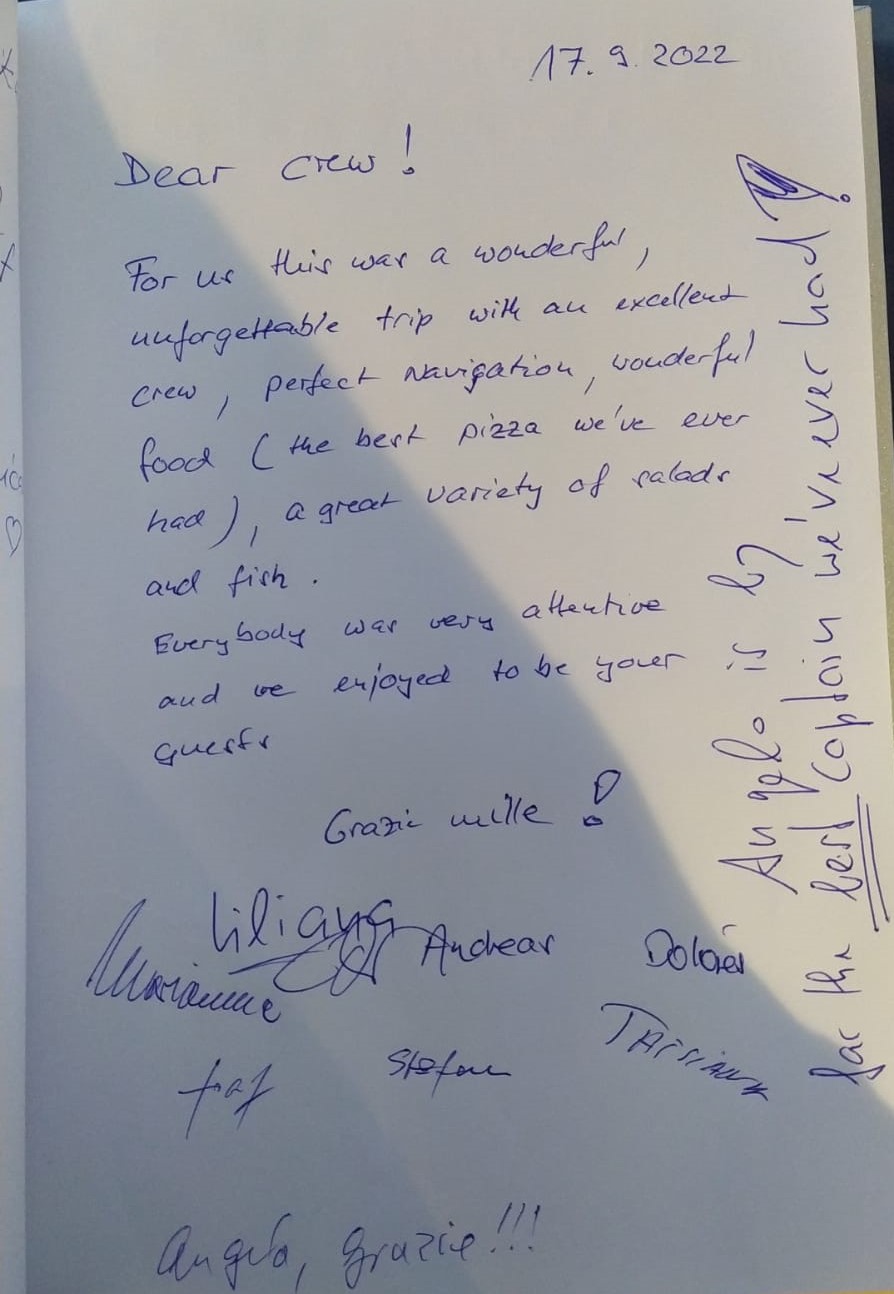 17. 9. 2022
Dear crew!
For us this was a wonderful,
unforgettable trip with an excellent
crew, perfect navigation, wonderful
food (the best pizza we've ever
had), a great variety of salads
and fish.
Everybody was very attentive
and we enjoyed to be your
guests
Grazie mille!
Liliana
Marianne
Andreas
Dolores
Stefan
Angelo, grazie!!!
Angelo is by
far the best captain we've ever had!